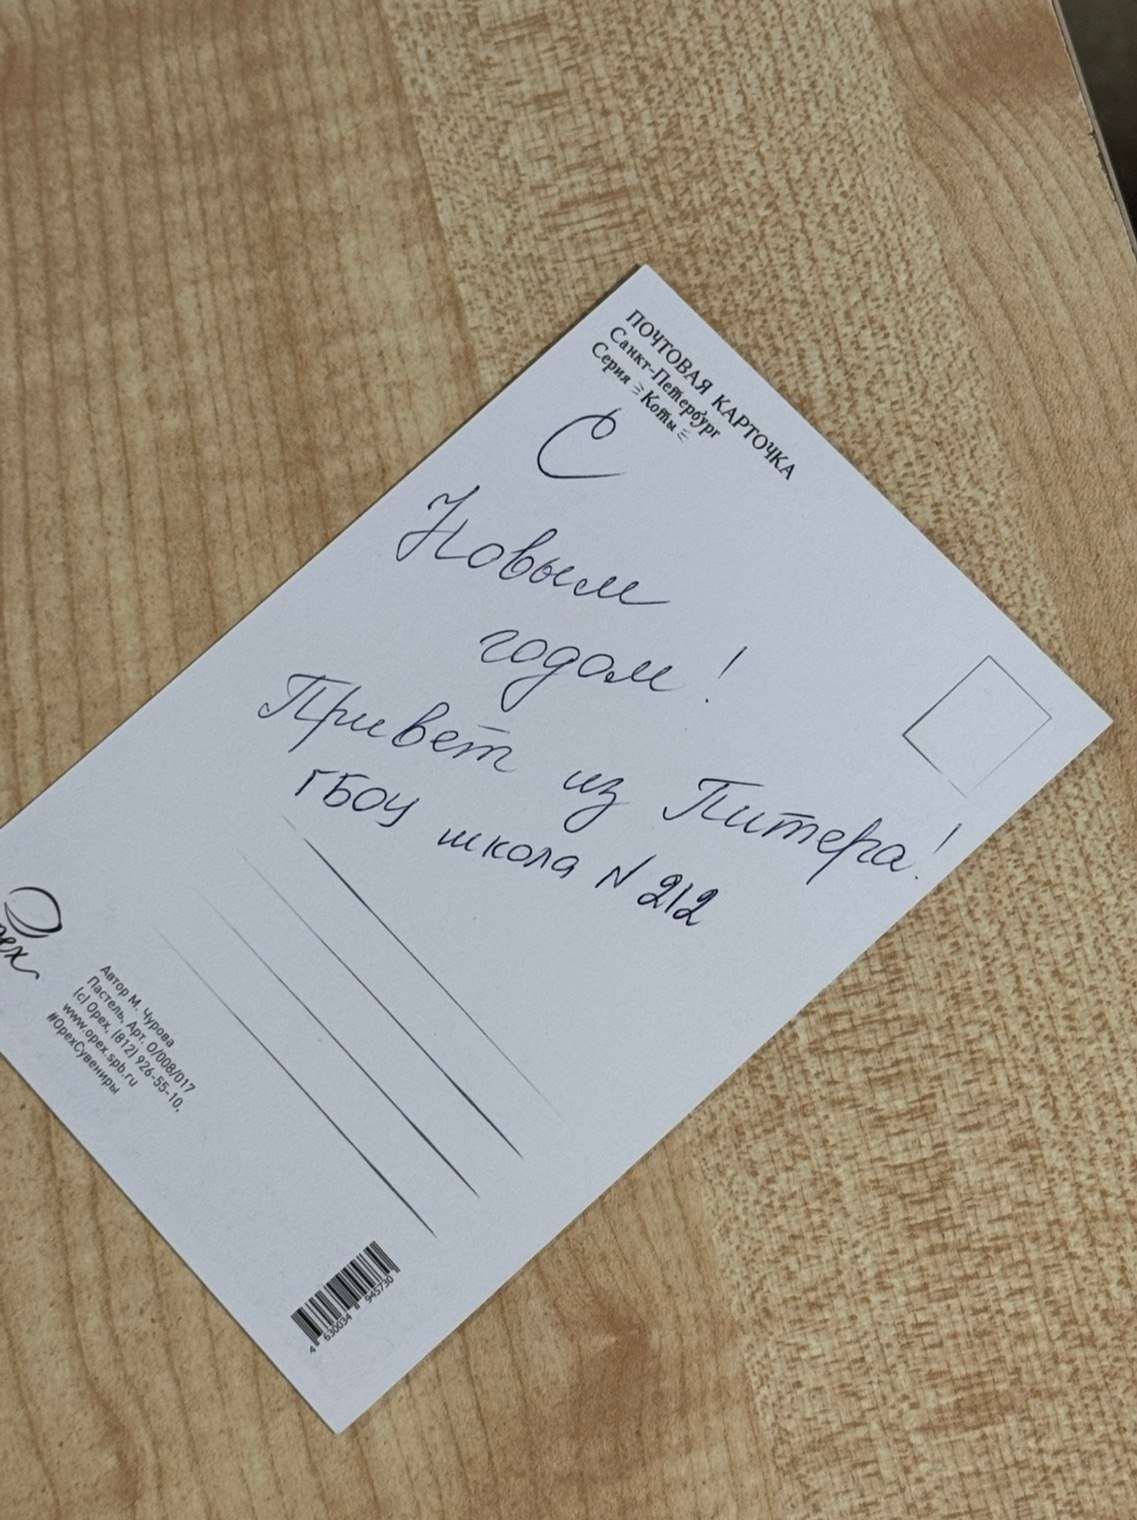 ПОЧТОВАЯ КАРТОЧКА
Санкт-Петербург
Серия Коты
С
Новым
годом!
Привет из Питера!
ГБОУ школа N 212
Автор М. Чурова
Пастель, Арт. О/008/017
(с) Орех, (812) 926-55-10,
www.opex.spb.ru
#ОрехСувениры
4 630034 945730